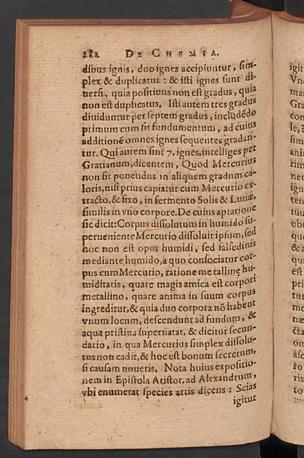 282 DE CHEMIA.
dibus ignis, duo ignes accipiuntur, sim-
plex & duplicatus: & isti ignes sunt di-
uersi, quia positiuus non est gradus, quia
non est duplicatus. Isti autem tres gradus
diuiduntur per septem gradus, includēdo
primum cum sit fundamentum, ad cuius
additionē omnes ignes sequentes gradan-
tur. Qui autem sint 7. ignes, intelliges per
Gratianum, dicentem, Quod Mercurius
non sit ponendus in aliquem gradum ca-
loris, nisi prius capiatur cum Mercurio ex-
tracto, & fixo, in fermento Solis & Lunæ,
similis in vno corpore. De cuius aptatione
sic dicit: Corpus dissolutum in humido su-
perueniente Mercurio dissoluti ipsum, sed
hoc non est opus humidi, sed salsedinis
mediante humido, a quo consociatur cor-
pus cum Mercurio, ratione metalling hu-
miditatis, quare magis amica est corpori
metallino, quare anima in suum corpus
ingreditur, & quia duo corpora nō habent
vnum locum, descendunt ad fundum, &
aqua pristina supernatat, & dicitur secun-
datio, in qua Mercurius simplex dissolu-
tus non cadit, & hoc est bonum secretum,
si causam noueris. Nota huius expositio-
nem in Epistola Aristot. ad Alexandrum,
vbi enumerat species artis dicens: Scias
igitur